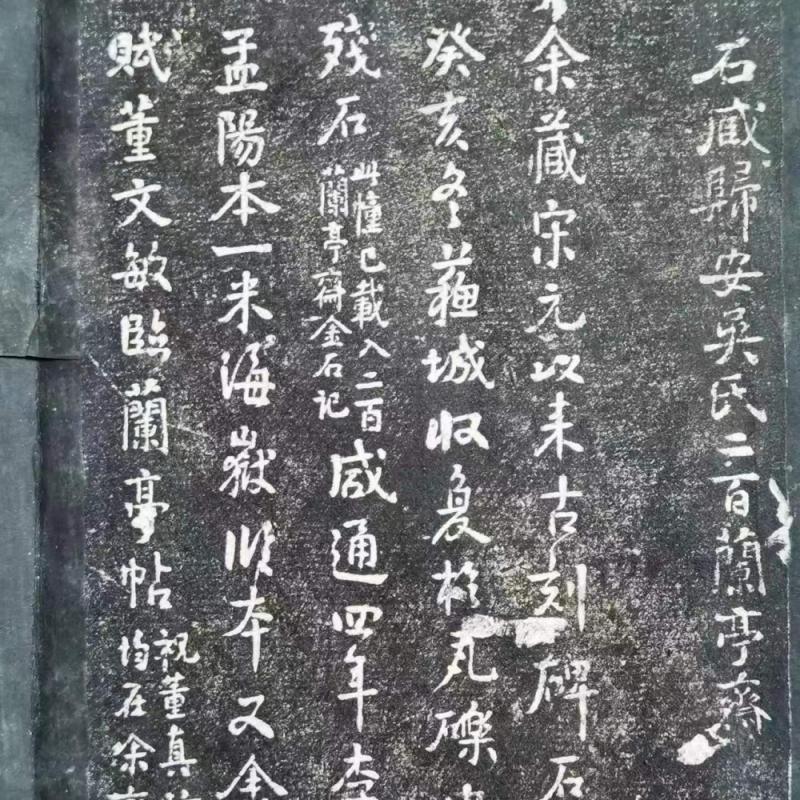 石臧歸安吳氏二百蘭亭齋
余藏宋元以来古刻碑石
癸亥冬蘓城收复於瓦礫
殘石此幢已載入二百蘭亭齋金石記咸通四年李
孟陽本一米海嶽臨本又余
賦董文敏臨蘭亭帖祝董真均在余